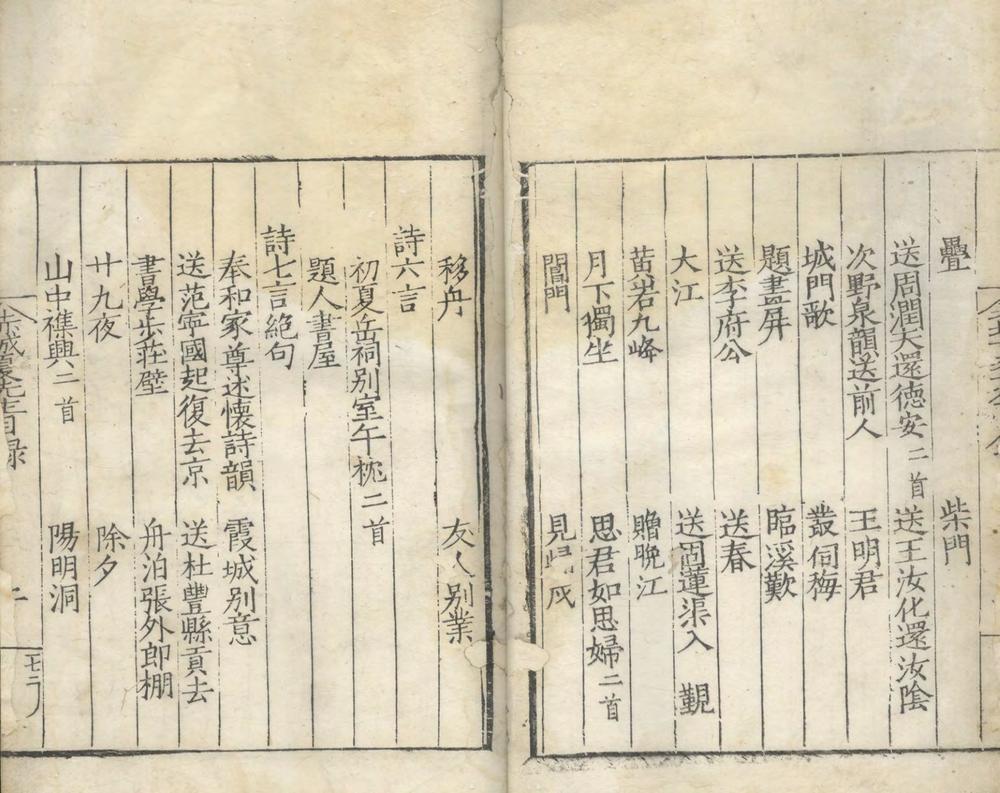 疊　柴門
送周潤夫還德安二首　送王汝化還汝陰
次野泉韻送前人　王明君
城門歌　叢伺梅
題畫屏　臨溪歎
送李府公　送春
大江　送蓮渠入　覲
苗岩九峰　贈晩江
月下獨坐　思君如思婦二首
閶門　見
移舟　友人别業
詩六言
初夏岳祠别室午枕二首
題人書屋
詩七言絕句
奉和家尊述懷詩韻　霞城别意
送范寧國起復去京　送杜豐縣貢去
書學步莊壁　舟泊張外郎棚
廿九夜　除夕
山中襍興二首　陽明洞
先生目録　二